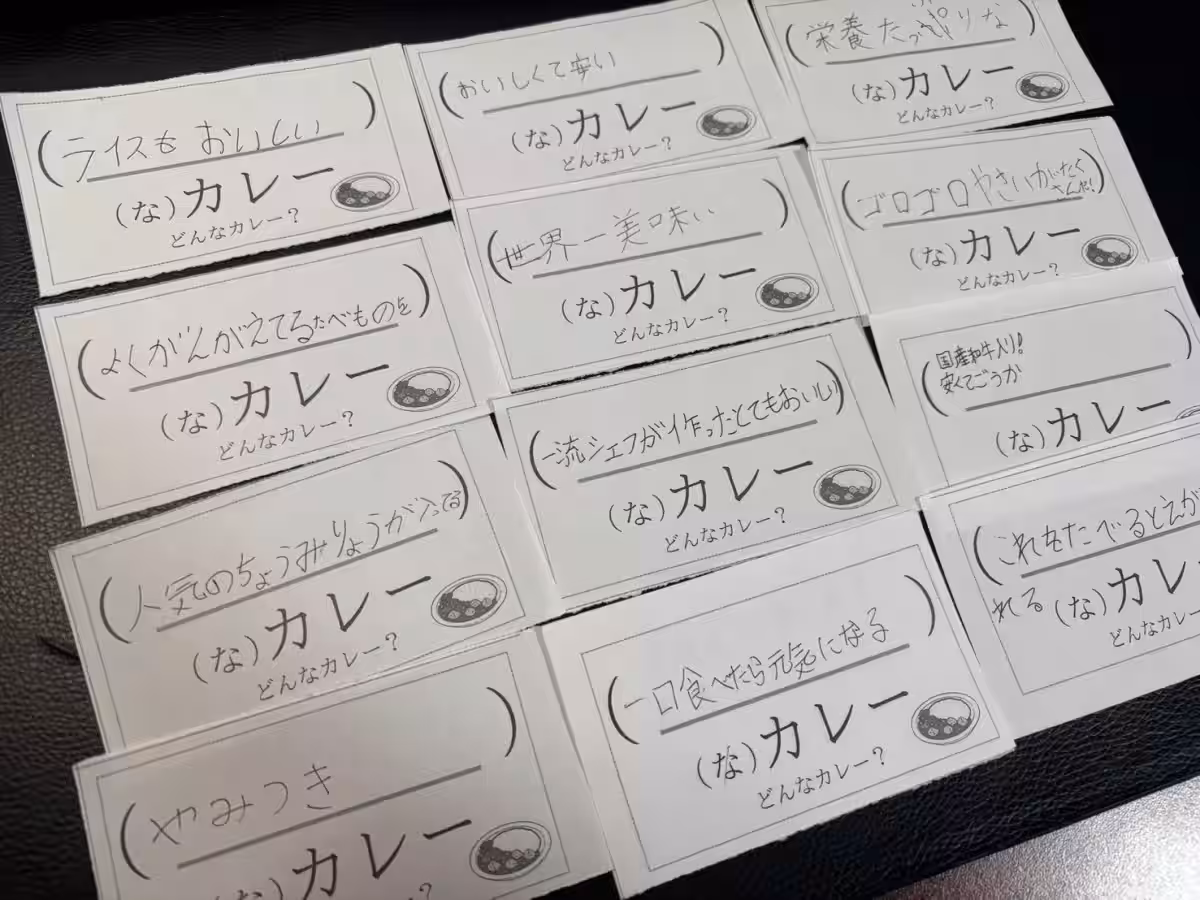 (ライスもおいしい)
(な)カレー
どんなカレー?
(おいしくて安い)
(な)カレー
どんなカレー?
(栄養たっぷりな
(な)カレー
どんなカレー?
(よくがんがえてるたべものを)
(な)カレー
どんなカレー?
(世界一美味い)
(な)カレー
どんなカレー?
(ゴロゴロやさいがたく
さんだ!)
(な)カレー
どんなカレー?
(人気のちょうみりょうが入ってる)
(な)カレー
どんなカレー?
(一流シェフが作ったとてもおいしい)
(な)カレー
どんなカレー?
(国産和牛入り!
安くてごうか)
(な)カレー
(やみつき)
(な)カレー
?
(一口食べたら元気になる)
(な)カレー
どんなカレー?
(これをたべるとえが
れる
(な)カレ
どんなカレー